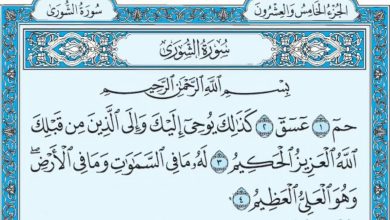 سُورَةُ الشُّورَىٰ الجُزْءُ الخَامِسُ وَالعِشْرُونَ
سُورَةُ الشُّورَىٰ
بِسْمِ اللَّهِ الرَّحْمَٰنِ الرَّحِيمِ
حمٓ ١ عٓسٓقٓ ٢ كَذَٰلِكَ يُوحِىٓ إِلَيْكَ وَإِلَى ٱلَّذِينَ مِن قَبْلِكَ
ٱللَّهُ ٱلْعَزِيزُ ٱلْحَكِيمُ ٣ لَهُۥ مَا فِى ٱلسَّمَٰوَٰتِ وَمَا فِى ٱلْأَرْضِ ۖ
وَهُوَ ٱلْعَلِىُّ ٱلْعَظِيمُ ٤